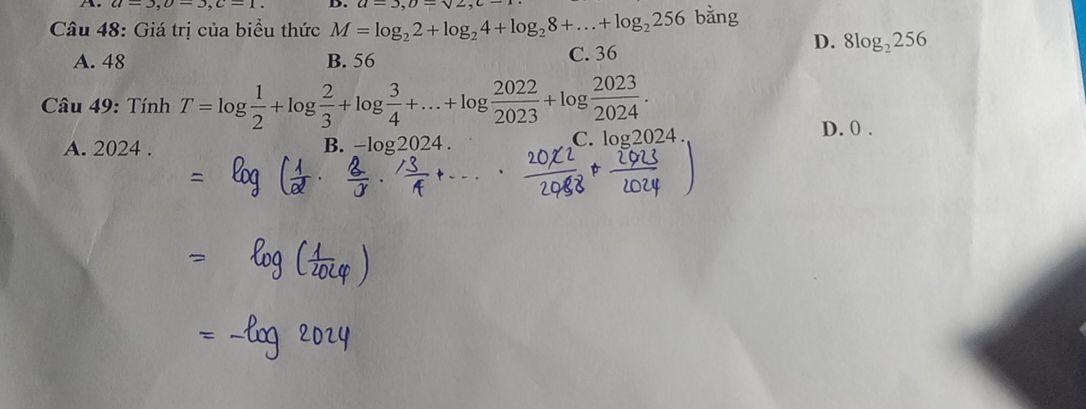 A. a = 3, b = 3, c = 1. B. a = 3, b = √2, c = 1.
Câu 48: Giá trị của biểu thức M = log₂2 + log₂4 + log₂8 + ... + log₂256 bằng
A. 48 B. 56 C. 36 D. 8log₂256
Câu 49: Tính T = log 1/2 + log 2/3 + log 3/4 + ... + log 2022/2023 + log 2023/2024 .
A. 2024 . B. −log2024 . C. log2024 . D. 0 .
= log (1/2 · 2/3 · 3/4 + ... · 2022/2023 + 2023/2024)
= log (1/2024)
= -log 2024